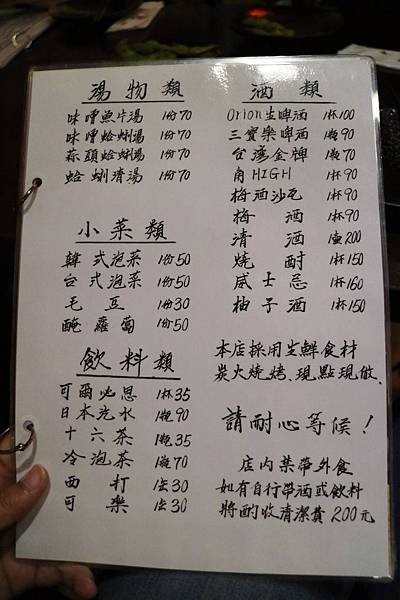 湯物類
味噌魚片湯 1份70
味噌蛤蜊湯 1份70
蒜頭蛤蜊湯 1份70
蛤蜊清湯 1份70
小菜類
韓式泡菜 1份50
台式泡菜 1份50
毛豆 1份30
醃蘿蔔 1份50
飲料類
可爾必思 1杯35
日本汽水 1瓶90
十六茶 1瓶35
冷泡茶 1瓶70
西打 1法30
可樂 1法30
酒類
Orion生啤酒 1杯100
三寶樂啤酒 1瓶90
台灣金牌 1瓶70
角HIGH 1杯90
梅酒沙瓦 1杯90
梅酒 1杯90
清酒 1壺200
燒酎 1杯150
威士忌 1杯160
柚子酒 1杯150
本店採用生鮮食材
炭火燒烤、現點現做、
請耐心等候!
店內禁帶外食
如有自行帶酒或飲料
將酌收清潔費200元